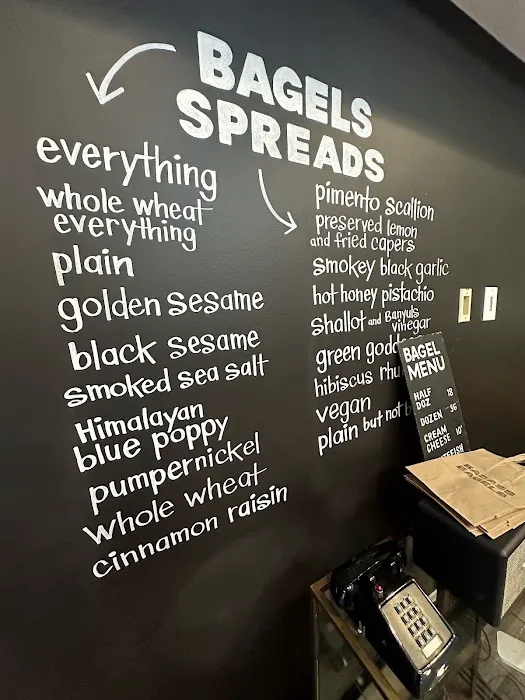 BAGELS
SPREADS
everything
whole wheat
everything
plain
golden sesame
black sesame
smoked sea salt
Himalayan
blue poppy
pumpernickel
whole wheat
cinnamon raisin
pimento scallion
preserved lemon
and fried capers
smokey black garlic
hot honey pistachio
shallot and Banyuls
vinegar
green godd
hibiscus rhu
vegan
plain but not b
BAGEL
MENU
HALF
DOZ 18
DOZEN 36
CREAM
CHEESE 10
BADASS
BAGELS